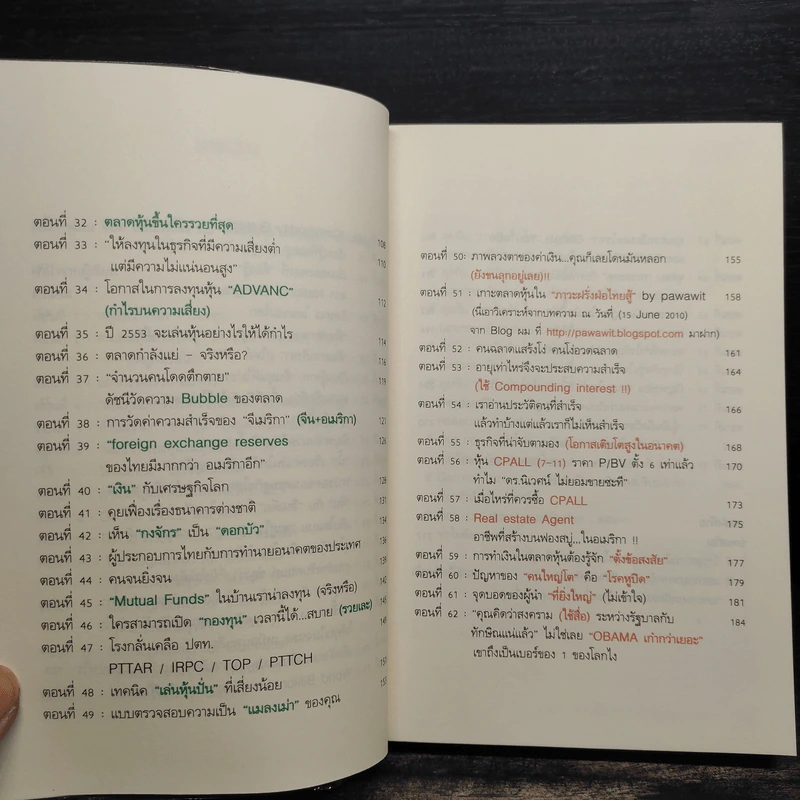 ตอนที่ 32 : ตลาดหุ้นขึ้นใครรวยที่สุด 108
ตอนที่ 33 : "ให้ลงทุนในธุรกิจที่มีความเสี่ยงต่ำ 110
แต่มีความไม่แน่นอนสูง"
ตอนที่ 34 : โอกาสในการลงทุนหุ้น "ADVANC" 112
(กำไรบนความเสี่ยง)
ตอนที่ 35 : ปี 2553 จะเล่นหุ้นอย่างไรให้ได้กำไร 114
ตอนที่ 36 : ตลาดกำลังแย่ - จริงหรือ?
ตอนที่ 37 : "จำนวนคนโดดตึกตาย" 119
ดัชนีวัดความ Bubble ของตลาด
ตอนที่ 38 : การวัดค่าความสำเร็จของ "จีเมริกา" (จีน+อเมริกา) 121
ตอนที่ 39 : "foreign exchange reserves
ของไทยมีมากกว่า อเมริกาอีก"
ตอนที่ 40 : "เงิน" กับเศรษฐกิจโลก
ตอนที่ 41 : คุยเฟื่องเรื่องธนาคารต่างชาติ
ตอนที่ 42 : เห็น "กงจักร" เป็น "ดอกบัว" 134
ตอนที่ 43 : ผู้ประกอบการไทยกับการทำนายอนาคตของประเทศ
ตอนที่ 44 : คนจนยิ่งจน
ตอนที่ 45 : "Mutual Funds" ในบ้านเราน่าลงทุน (จริงหรือ)
ตอนที่ 46 : ใครสามารถเปิด "กองทุน" เวลานี้ได้...สบาย (รวยเละ)
ตอนที่ 47 : โรงกลั่นเครือ ปตท.
PTTAR / IRPC / TOP / PTTCH
ตอนที่ 48 : เทคนิค "เล่นหุ้นปั่น" ที่เสี่ยงน้อย
ตอนที่ 49 : แบบตรวจสอบความเป็น "แมลงเม่า" ของคุณ
ตอนที่ 50: ภาพลวงตาของค่าเงิน...คุณก็เลยโดนมันหลอก 155
(ยังขนลุกอยู่เลย)!!
ตอนที่ 51 : เกาะตลาดหุ้นใน "ภาวะฝรั่งฝ่อไทยสู้" by pawawit 158
(นี่เอาวิเคราะห์จากบทความ ณ วันที่ (15 June 2010)
จาก Blog ผม ที่ http://pawawit.blogspot.com มาฝาก)
ตอนที่ 52 : คนฉลาดแสร้งโง่ คนโง่อวดฉลาด 161
ตอนที่ 53 : อายุเท่าไหร่จึงจะประสบความสำเร็จ 164
(ใช้ Compounding interest !!)
ตอนที่ 54 : เราอ่านประวัติคนที่สำเร็จ 166
แล้วทำบ้างแต่แล้วเราก็ไม่เห็นสำเร็จ
ตอนที่ 55 : ธุรกิจที่น่าจับตามอง (โอกาสเติบโตสูงในอนาคต) 168
ตอนที่ 56 : หุ้น CPALL (7-11) ราคา P/BV ตั้ง 6 เท่าแล้ว 170
ทำไม "ดร.นิเวศน์ ไม่ยอมขายซะที"
ตอนที่ 57 : เมื่อไหร่ที่ควรซื้อ CPALL 173
ตอนที่ 58 : Real estate Agent 175
อาชีพที่สร้างบนฟองสบู่...ในอเมริกา !!
ตอนที่ 59 : การทำเงินในตลาดหุ้นต้องรู้จัก "ตั้งข้อสงสัย" 177
ตอนที่ 60 : ปัญหาของ "คนใหญ่โต" คือ "โรคหูปิด" 179
ตอนที่ 61 : จุดบอดของผู้นำ "ที่ยิ่งใหญ่" (ไม่เข้าใจ) 181
ตอนที่ 62 : "คุณคิดว่าสงคราม (ใช้สื่อ) ระหว่างรัฐบาลกับ 184
ทักษิณแน่แล้ว" ไม่ใช่เลย "OBAMA เก๋ากว่าเยอะ"
เขาถึงเป็นเบอร์ของ 1 ของโลกไง